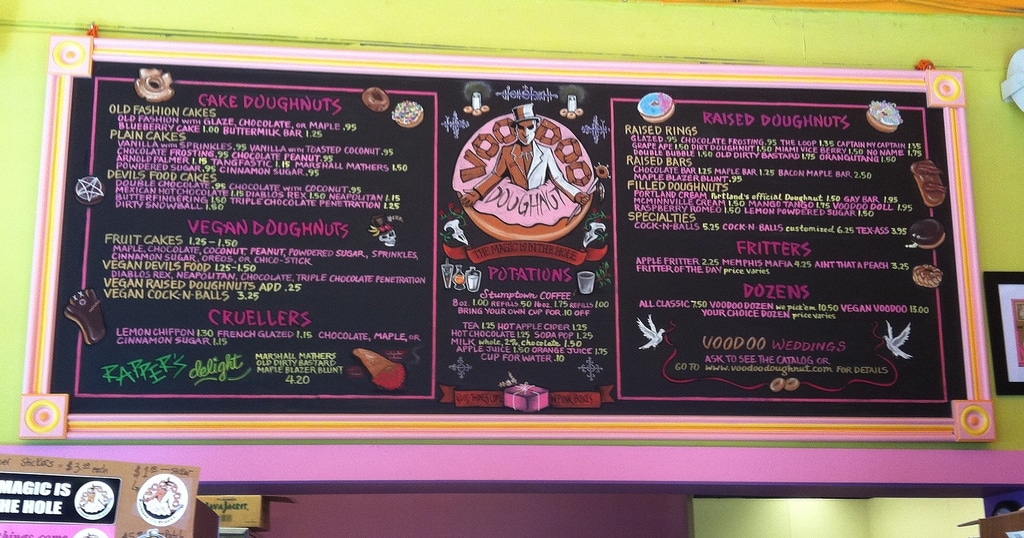 CAKE DOUGHNUTS
OLD FASHION CAKES
OLD FASHION WITH GLAZE, CHOCOLATE, OR MAPLE .95
BLUEBERRY CAKE 1.00 BUTTERMILK BAR 1.25
PLAIN CAKES
VANILLA WITH SPRINKLES .95 VANILLA WITH TOASTED COCONUT .95
CHOCOLATE FROSTING .95 CHOCOLATE PEANUT .95
ARNOLD PALMER 1.15 TANGFASTIC 1.15 MARSHALL MATHERS 1.50
POWDERED SUGAR .95 CINNAMON SUGAR .95
DEVILS FOOD CAKES
DOUBLE CHOCOLATE .95 CHOCOLATE WITH COCONUT .95
MEXICAN HOT CHOCOLATE 1.15 DIABLOS REX 1.50 NEAPOLITAN 1.15
BUTTERFINGERING 1.50 TRIPLE CHOCOLATE PENETRATION 1.25
DIRTY SNOWBALL 1.50
VEGAN DOUGHNUTS
FRUIT CAKES 1.25-1.50
MAPLE, CHOCOLATE, COCONUT, PEANUT, POWDERED SUGAR, SPRINKLES,
CINNAMON SUGAR, OREOS, OR CHICO-STICK
VEGAN DEVILS FOOD 1.25-1.50
DIABLOS REX, NEAPOLITAN, CHOCOLATE, TRIPLE CHOCOLATE PENETRATION
VEGAN RAISED DOUGHNUTS ADD .25
VEGAN COCK-N-BALLS 3.25
CRUELLERS
LEMON CHIFFON 1.30 FRENCH GLAZED 1.15 CHOCOLATE, MAPLE, OR
CINNAMON SUGAR 1.15
RAPPER'S delight
MARSHALL MATHERS
OLD DIRTY BASTARD
MAPLE BLAZER BLUNT
4.20
VOODOO
DOUGHNUT
THE MAGIC IS IN THE HOLE
POTATIONS
Stumptown COFFEE
8 oz. 1.00 REFILLS .50 16 oz. 1.75 REFILLS 1.00
BRING YOUR OWN CUP FOR .10 OFF
TEA 1.25 HOT APPLE CIDER 1.25
HOT CHOCOLATE 1.25 SODA POP 1.25
MILK whole, 2%, chocolate 1.50
APPLE JUICE 1.50 ORANGE JUICE 1.75
CUP FOR WATER .10
GOOD THINGS COME IN PINK BOXES
RAISED DOUGHNUTS
RAISED RINGS
GLAZED .95 CHOCOLATE FROSTING .95 THE LOOP 1.35 CAPTAIN MY CAPTAIN 1.35
GRAPE APE 1.50 DIRT DOUGHNUT 1.50 MIAMI VICE BERRY 1.50 NO NAME 1.75
DOUBLE BUBBLE 1.50 OLD DIRTY BASTARD 1.75 ORANGUTANG 1.50
RAISED BARS
CHOCOLATE BAR 1.25 MAPLE BAR 1.25 BACON MAPLE BAR 2.50
MAPLE BLAZER BLUNT .95
FILLED DOUGHNUTS
PORTLAND CREAM Portland's official Doughnut 1.50 GAY BAR 1.95
MCMINNVILLE CREAM 1.50 MANGO TANGO 1.75 VOODOO DOLL 1.95
RASPBERRY ROMEO 1.50 LEMON POWDERED SUGAR 1.50
SPECIALTIES
COCK-N-BALLS 5.25 COCK-N-BALLS customized 6.25 TEX-ASS 3.95
FRITTERS
APPLE FRITTER 2.25 MEMPHIS MAFIA 4.25 AINT THAT A PEACH 3.25
FRITTER OF THE DAY price varies
DOZENS
ALL CLASSIC 7.50 VOODOO DOZEN we pick'em 10.50 VEGAN VOODOO 13.00
YOUR CHOICE DOZEN price varies
VOODOO WEDDINGS
ASK TO SEE THE CATALOG OR
GO TO www.voodoodoughnut.com FOR DETAILS
MAGIC IS
THE HOLE
things come